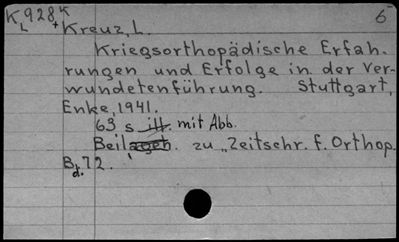 K 928 K 6
L +
Kreuz, L.
Kriegsorthopädische Erfah-
rungen und Erfolge in der Ver-
wundetenführung. Stuttgart,
Enke, 1941.
63 s. ill. mit Abb.
Beilagen. zu „Zeitschr. f. Orthop.
Bd. 72.